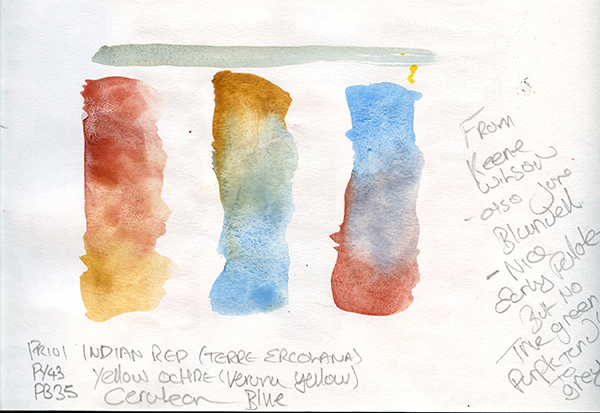 PR101 INDIAN RED (TERRE ERCOLANA)
PY43 Yellow OCHRE (Verona Yellow)
PB35 Cerulean Blue
From
Keene
Wilson
also June
Blundell.
- Nice
early Palate
But no
True green
purple Tend
to grey